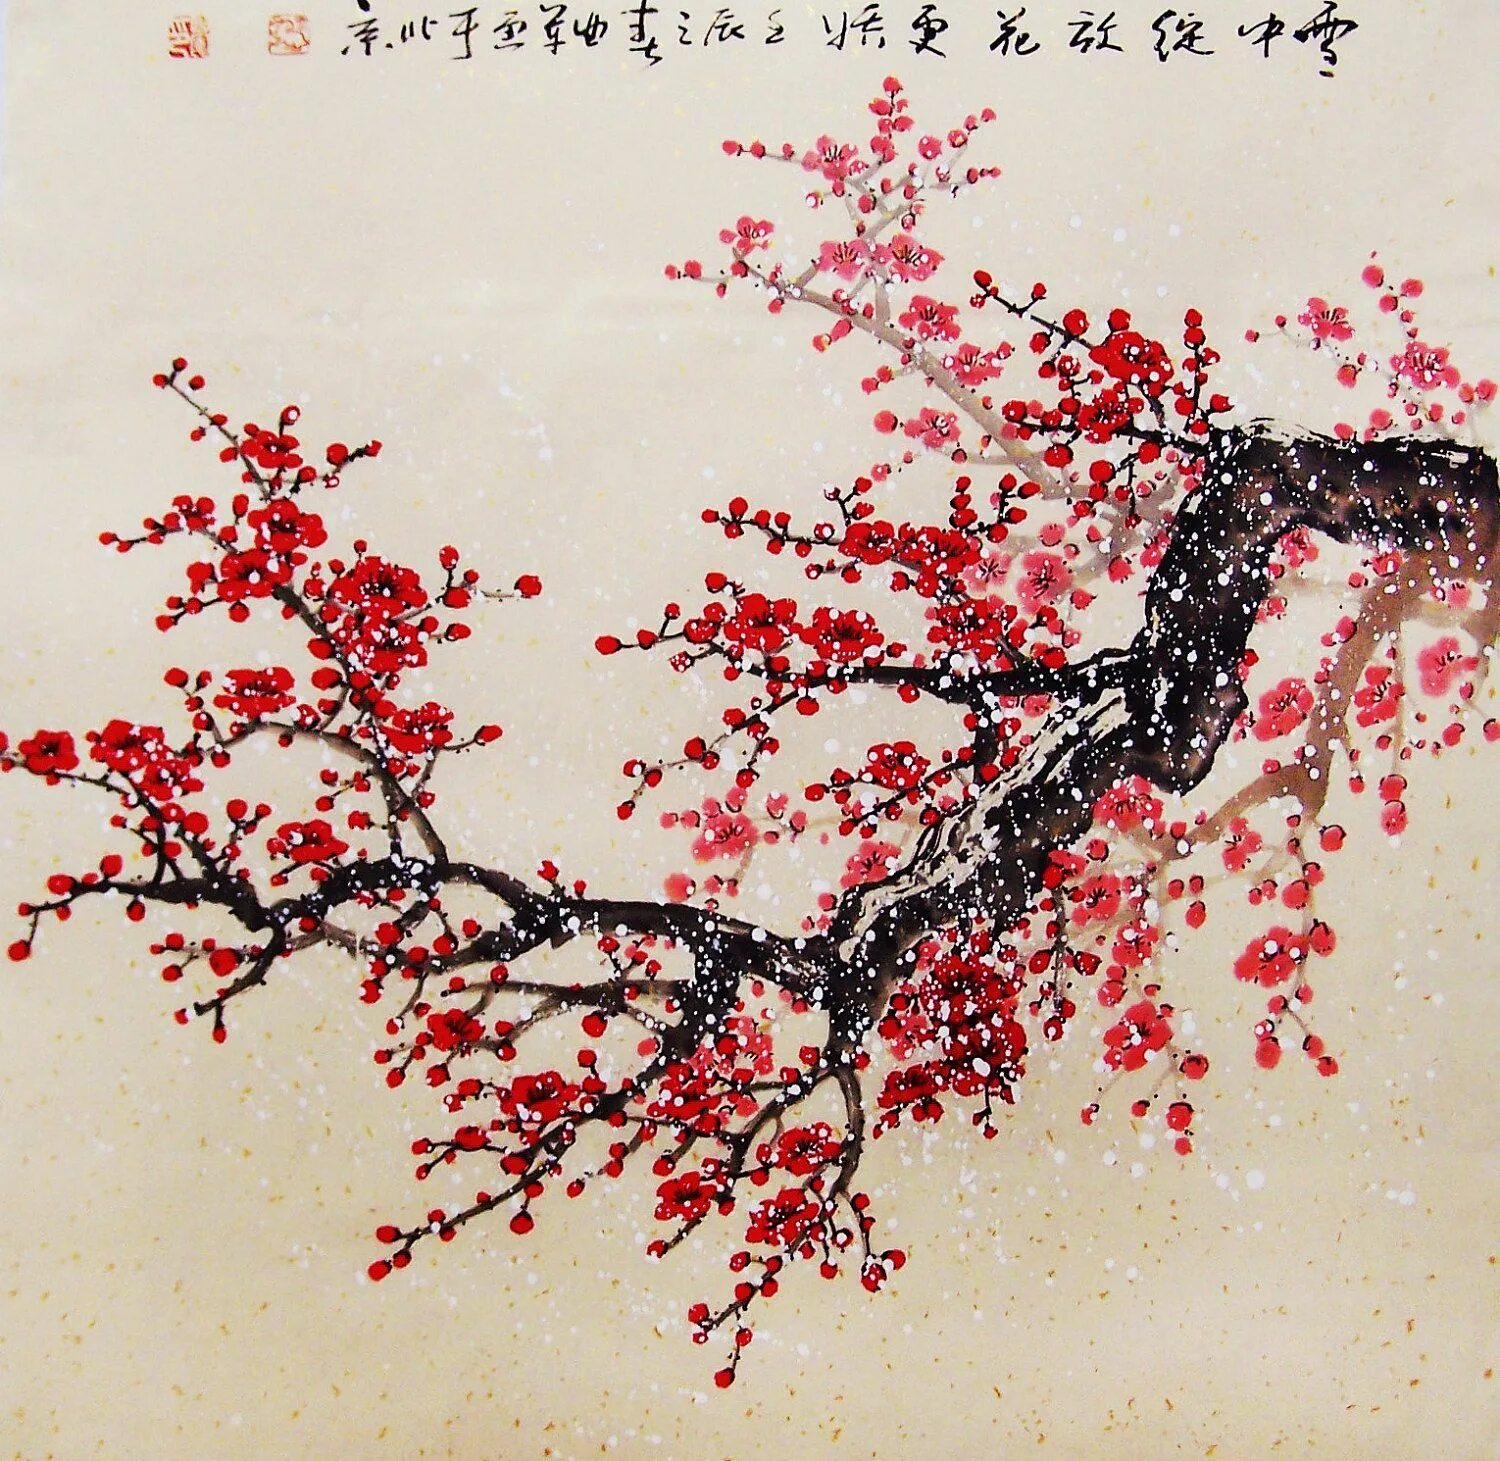 雪中绽放花更娇壬辰之春曲于北京